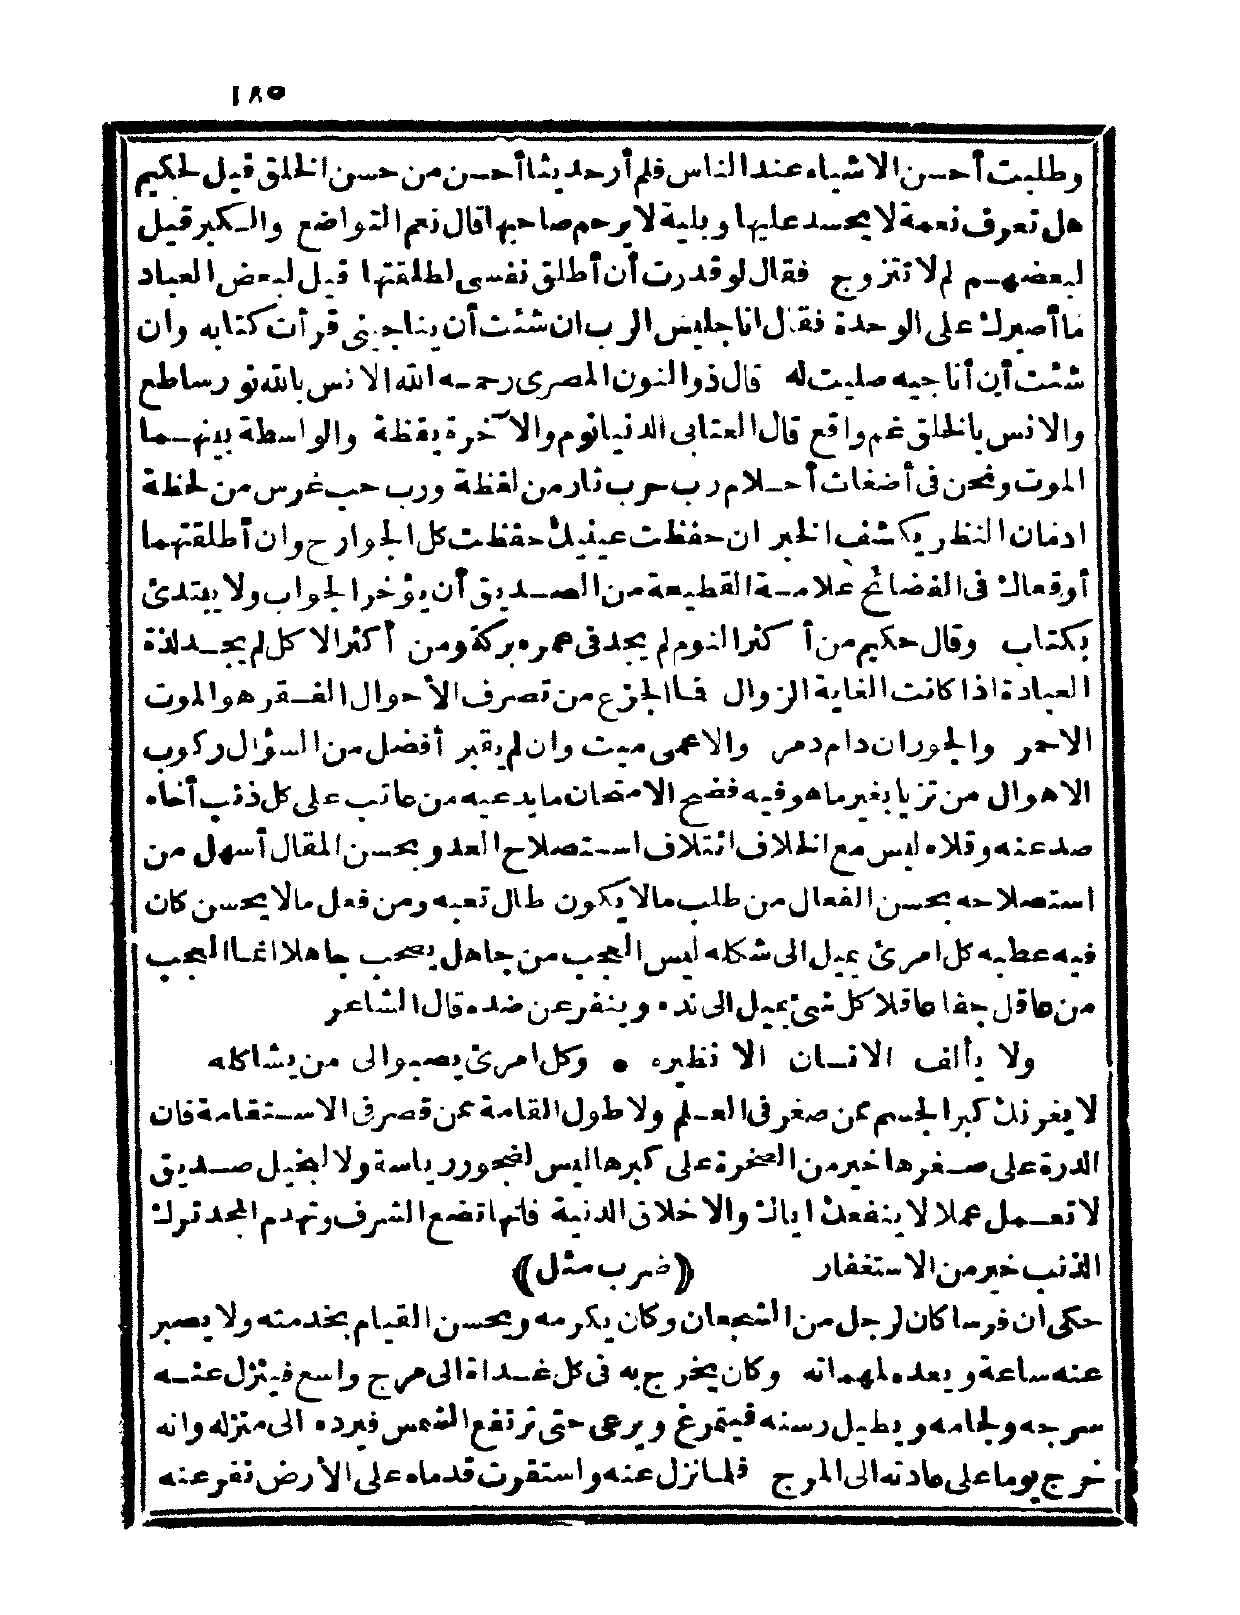 ١٨٥
وطلبت أحسن الاشياء عند الناس فلم أر حديثا أحسن من حسن الخلق قيل لحكيم
هل تعرف نعمة لا يحسد عليها وبلية لا يرحم صاحبها قال نعم التواضع والكبر قيل
لبعضهم لم لا تتزوج فقال لو قدرت أن أطلق نفسى لطلقتها قيل لبعض العباد
ما أصبرك على الوحدة فقال انا جليس الرب ان شئت أن يناجينى قرأت كتابه وان
شئت أن أناجيه صليت له قال ذو النون المصرى رحمه الله الانس بالله نور ساطع
والانس بالخلق غم واقع قال العتابى الدنيا نوم والآخرة يقظة والواسطة بينهما
الموت ونحن فى أضغاث أحلام رب حرب نار من لفظة ورب حب غرس من لحظة
ادمان النظر يكشف الخبر ان حفظت عينيك حفظت كل الجوارح وان أطلقتهما
أوقعاك فى الفضائح علامة القطيعة من الصديق أن يؤخر الجواب ولا يبتدئ
بكتاب وقال حكيم من أكثر النوم لم يجد فى عمره بركة ومن أكثر الاكل لم يجد لذة
العبادة اذا كانت الغاية الزوال فما الجزع من تصرف الأحوال الفقر هو الموت
الاحمر والجور ان دام دمر والاعمى ميت وان لم يقبر أفضل من السؤال ركوب
الاهوال من تزيا بغير ما هو فيه فضح الامتحان ما يدعيه من عاتب على كل ذنب أخاه
صد عنه وقلاه ليس مع الخلاف ائتلاف استصلاح العدو بحسن المقال أسهل من
استصلاحه بحسن الفعال من طلب مالا يكون طال تعبه ومن فعل مالا يحسن كان
فيه عطبه كل امرئ يميل الى شكله ليس العجب من جاهل يصحب جاهلا انما العجب
من عاقل جفا عاقلا كل شئ يميل الى نده وينفر عن ضده قال الشاعر
ولا يألف الانسان الا نظيره • وكل امرئ يصبو الى من يشاكله
لا يغرنك كبر الجسم عمن صغر فى العلم ولا طول القامة عمن قصر فى الاستقامة فان
الدرة على صغرها خير من الصخرة على كبرها ليس لضجور رياسة ولا لبخيل صديق
لا تعمل عملا لا ينفعك اياك والاخلاق الدنية فانها تضع الشرف وتهدم المجد ترك
الذنب خير من الاستغفار (ضرب مثل)
حكى ان فرسا كان لرجل من الشجعان وكان يكرمه ويحسن القيام بخدمته ولا يصبر
عنه ساعة ويعده لمهماته وكان يخرج به فى كل غداة الى مرج واسع فينزل عنه
سرجه ولجامه ويطيل رسنه فيتمرغ ويرعى حتى ترتفع الشمس فيرده الى منزله وانه
خرج يوما على عادته الى المرج فلما نزل عنه واستقرت قدماه على الأرض نفر عنه